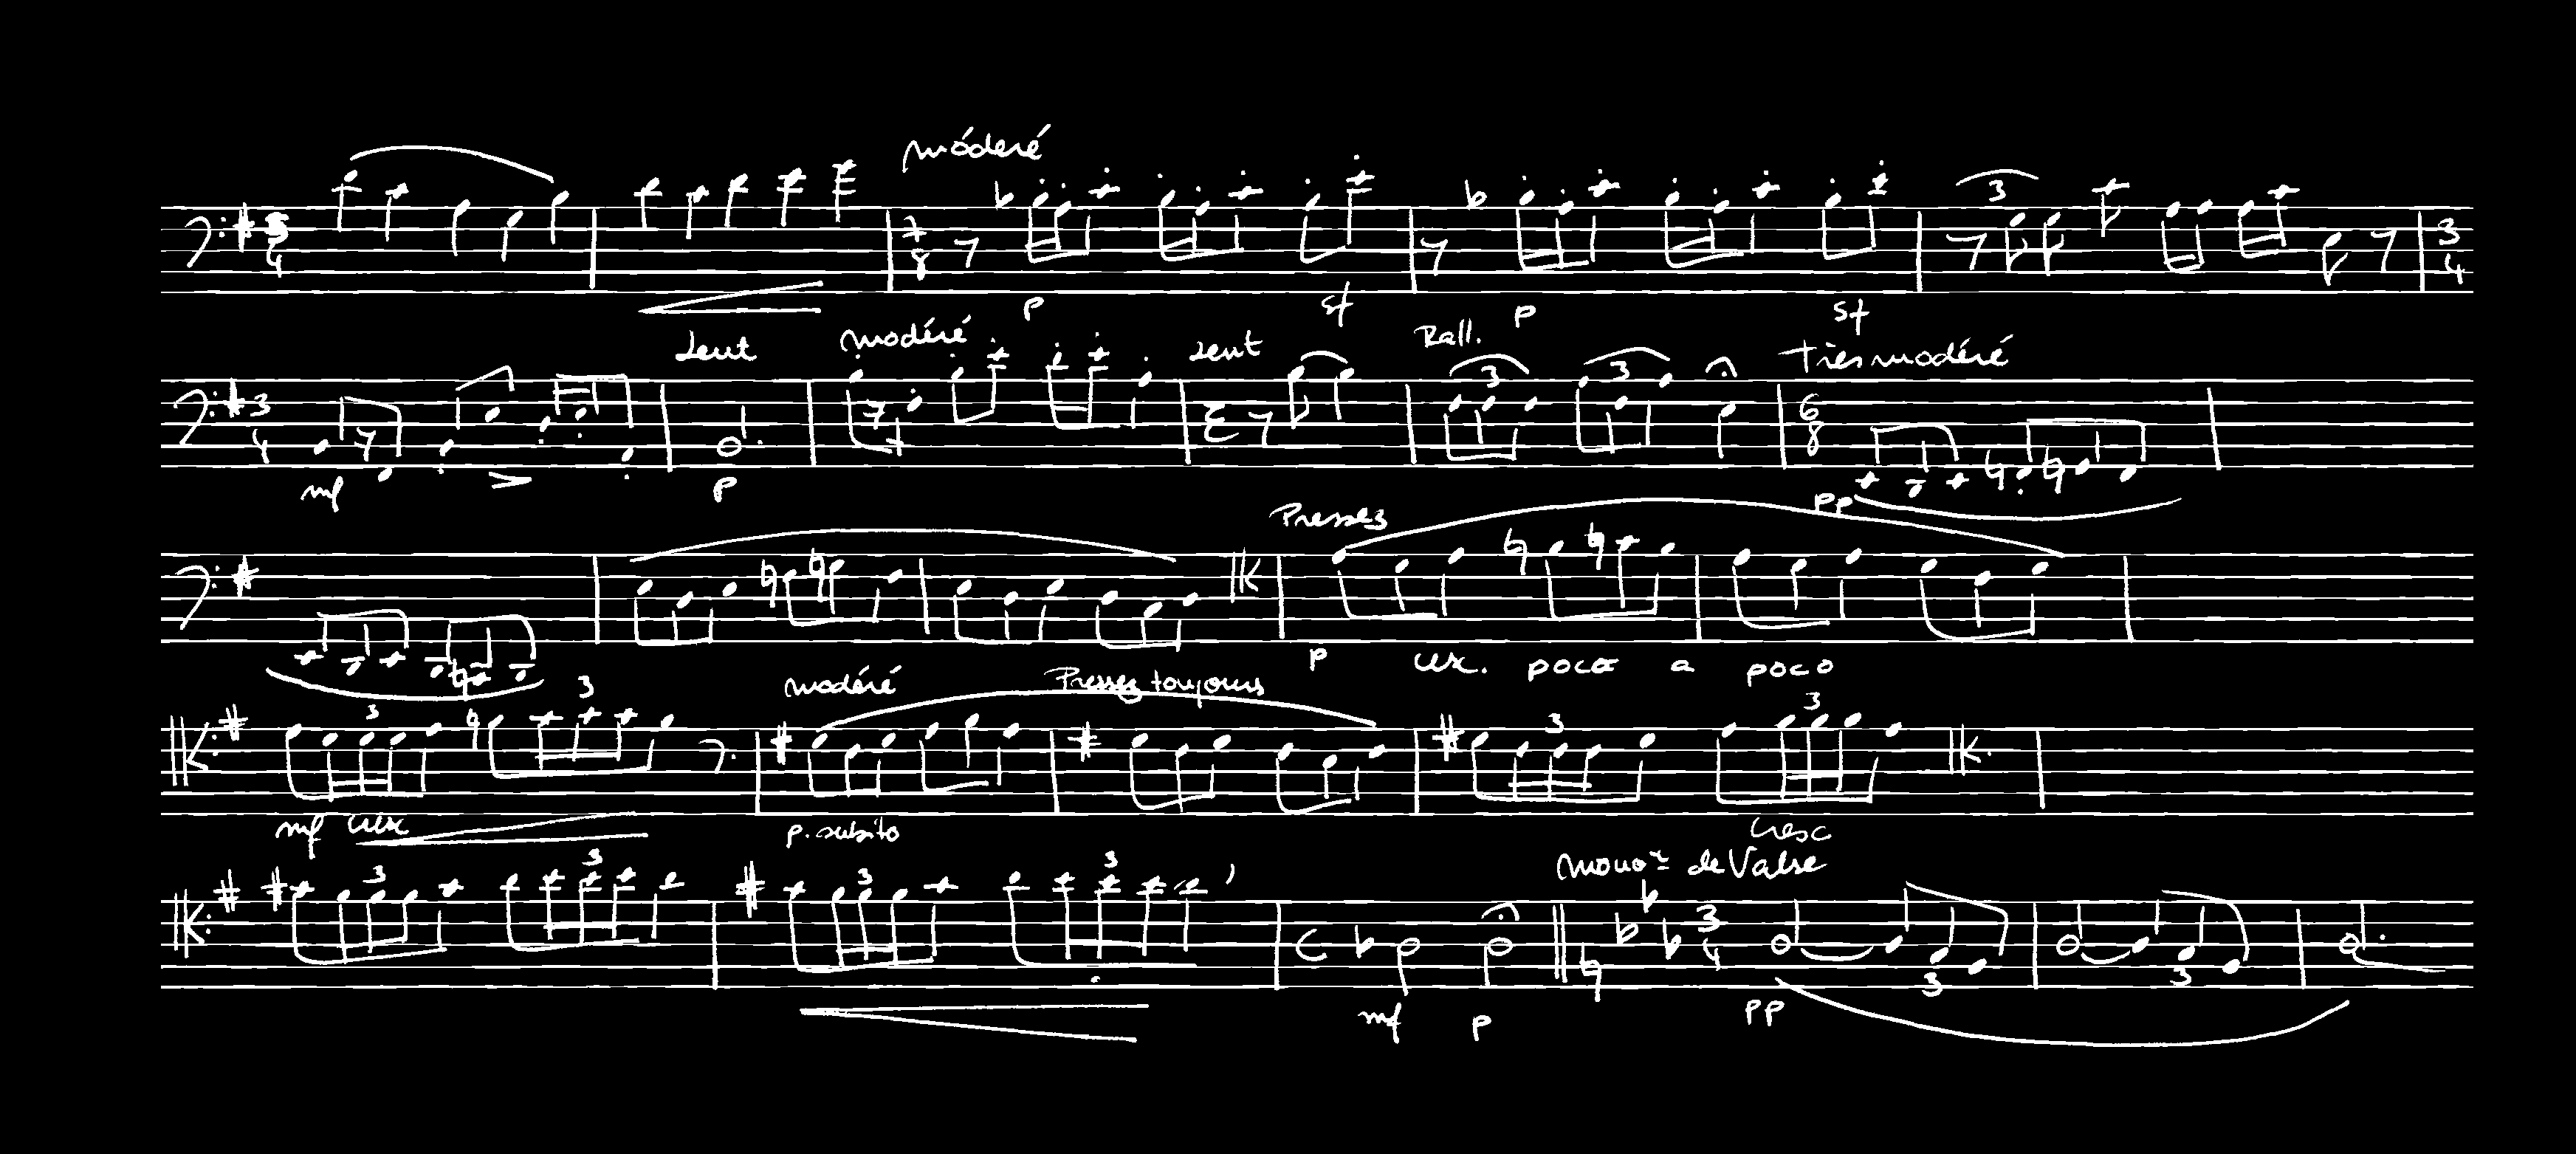 móderé
5 4
7 8
p sf p sf
3
3 4
Lent modéré Lent Rall. Tres modéré
3 4
3 3
6 8
mf p pp
Pressez
p cresc. poco a poco
modéré Pressez toujours
3 3 3 3
mf cresc p. subito cresc
mouvt de Valse
3 3 3 3
C 3 4
3 3
mf p pp